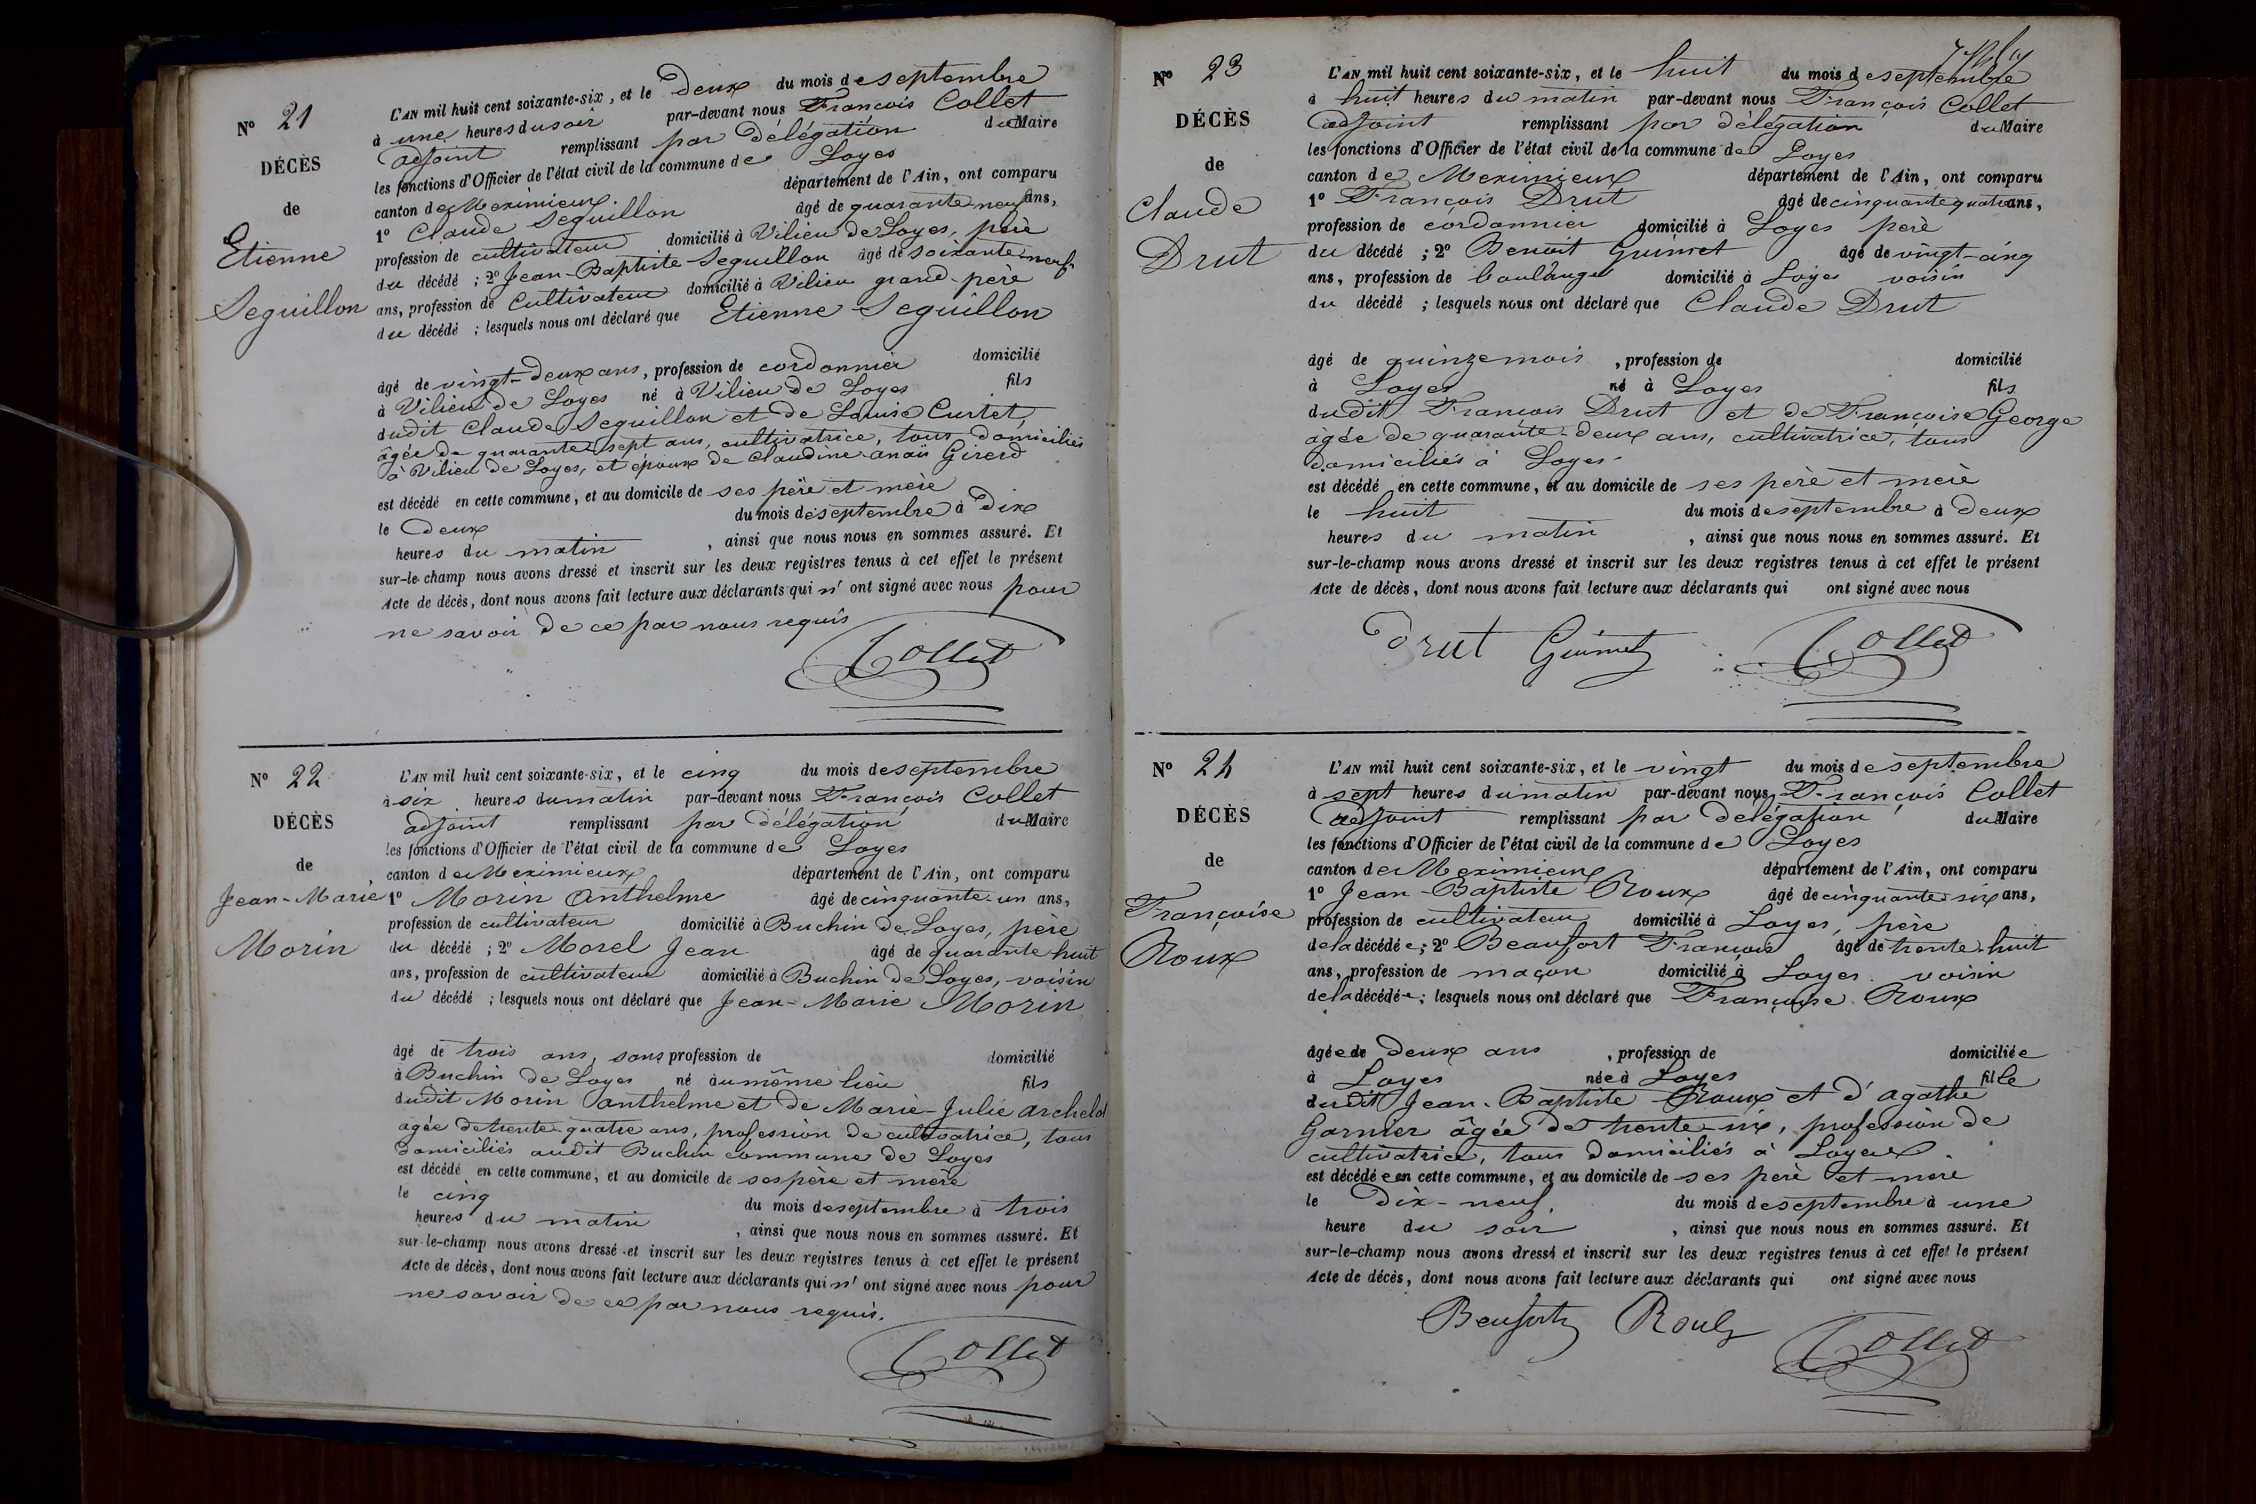 N° 21
DÉCÈS
de
Etienne
Seguillon
L'AN mil huit cent soixante-six, et le deux du mois de septembre
à une heures du soir par-devant nous François Collet
adjoint remplissant par délégation du Maire
les fonctions d'Officier de l'état civil de la commune de Loyes
canton de Meximieux département de l'Ain, ont comparu
1° Claude Seguillon âgé de quarante neuf ans,
profession de cultivateur domicilié à Vilieu de Loyes, père
du décédé ; 2° Jean-Baptiste Seguillon âgé de soixante neuf
ans, profession de Cultivateur domicilié à Vilieu grand-père
du décédé ; lesquels nous ont déclaré que Etienne Seguillon
âgé de vingt-deux ans, profession de cordonnier domicilié
à Vilieu de Loyes né à Vilieu de Loyes fils
dudit Claude Seguillon et de Louise Curtet,
âgée de quarante sept ans, cultivatrice, tous domiciliés
à Vilieu de Loyes, et époux de Claudine anaïs Girerd
est décédé en cette commune, et au domicile de ses père et mère
le deux du mois de septembre à dix
heures du matin, ainsi que nous nous en sommes assuré. Et
sur-le-champ nous avons dressé et inscrit sur les deux registres tenus à cet effet le présent
Acte de décès, dont nous avons fait lecture aux déclarants qui n'ont signé avec nous pour
ne savoir de ce par nous requis
Collet
N° 22
DÉCÈS
de
Jean-Marie
Morin
L'AN mil huit cent soixante-six, et le cinq du mois de septembre
à six heures du matin par-devant nous François Collet
adjoint remplissant par délégation du Maire
les fonctions d'Officier de l'état civil de la commune de Loyes
canton de Meximieux département de l'Ain, ont comparu
1° Morin Anthelme âgé de cinquante-un ans,
profession de cultivateur domicilié à Buchin de Loyes, père
du décédé ; 2° Morel Jean âgé de quarante huit
ans, profession de cultivateur domicilié à Buchin de Loyes, voisin
du décédé ; lesquels nous ont déclaré que Jean-Marie Morin
âgé de trois ans, sans profession de domicilié
à Buchin de Loyes né au même lieu fils
dudit Morin Anthelme et de Marie-Julie
agée de trente-quatre ans, profession de cultivatrice, tous
domiciliés audit Buchin commune de Loyes
est décédé en cette commune, et au domicile de ses père et mère
le cinq du mois de septembre à trois
heures du matin, ainsi que nous nous en sommes assuré. Et
sur-le-champ nous avons dressé et inscrit sur les deux registres tenus à cet effet le présent
Acte de décès, dont nous avons fait lecture aux déclarants qui n'ont signé avec nous pour
ne savoir de ce par nous requis.
Collet
N° 23
DÉCÈS
de
Claude
Drut
L'AN mil huit cent soixante-six, et le huit du mois de septembre
à huit heures du matin par-devant nous François Collet
adjoint remplissant par délégation du Maire
les fonctions d'Officier de l'état civil de la commune de Loyes
canton de Meximieux département de l'Ain, ont comparu
1° François Drut âgé de cinquante quatre ans,
profession de cordonnier domicilié à Loyes père
du décédé ; 2° Benoit Guimet âgé de vingt-cinq
ans, profession de boulanger domicilié à Loyes voisin
du décédé ; lesquels nous ont déclaré que Claude Drut
âgé de quinze mois, profession de domicilié
à Loyes né à Loyes fils
dudit François Drut et de Françoise George
âgée de quarante-deux ans, cultivatrice, tous
domiciliés à Loyes
est décédé en cette commune, et au domicile de ses père et mère
le huit du mois de septembre à deux
heures du matin, ainsi que nous nous en sommes assuré. Et
sur-le-champ nous avons dressé et inscrit sur les deux registres tenus à cet effet le présent
Acte de décès, dont nous avons fait lecture aux déclarants qui ont signé avec nous
Drut Guimet Collet
N° 24
DÉCÈS
de
Françoise
Roux
L'AN mil huit cent soixante-six, et le vingt du mois de septembre
à sept heures du matin par-devant nous François Collet
adjoint remplissant par délégation du Maire
les fonctions d'Officier de l'état civil de la commune de Loyes
canton de Meximieux département de l'Ain, ont comparu
1° Jean-Baptiste Roux âgé de cinquante six ans,
profession de cultivateur domicilié à Loyes, père
de la décédée ; 2° Beaufort François âgé de trente-huit
ans, profession de maçon domicilié à Loyes voisin
de la décédée ; lesquels nous ont déclaré que Françoise Roux
âgée de deux ans, profession de domiciliée
à Loyes née à Loyes fille
dudit Jean-Baptiste Roux et d'agathe
Garnier âgée de trente-six, profession de
cultivatrice, tous domiciliés à Loyes
est décédée en cette commune, et au domicile de ses père et mère
le dix-neuf, du mois de septembre à une
heure du soir, ainsi que nous nous en sommes assuré. Et
sur-le-champ nous avons dressé et inscrit sur les deux registres tenus à cet effet le présent
Acte de décès, dont nous avons fait lecture aux déclarants qui ont signé avec nous
Collet